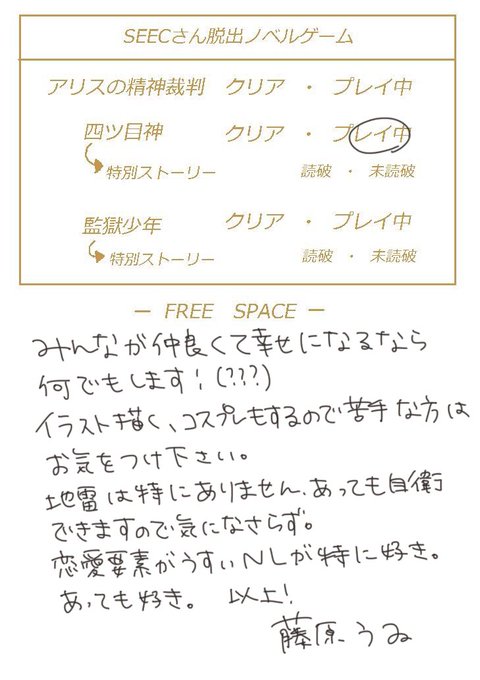 SEECさん脱出ノベルゲーム
アリスの精神裁判 クリア ・ プレイ中
四ツ目神 クリア ・ プレイ中
特別ストーリー 読破 ・ 未読破
監獄少年 クリア ・ プレイ中
特別ストーリー 読破 ・ 未読破
ー FREE SPACE ー
みんなが仲良くて幸せになるなら
何でもします!(???)
イラスト描く、コスプレもするので苦手な方は
お気をつけ下さい。
地雷は特にありません、あっても自衛
できますので気になさらず。
恋愛要素がうすいNLが特に好き。
あっても好き。 以上!
藤原うゐ